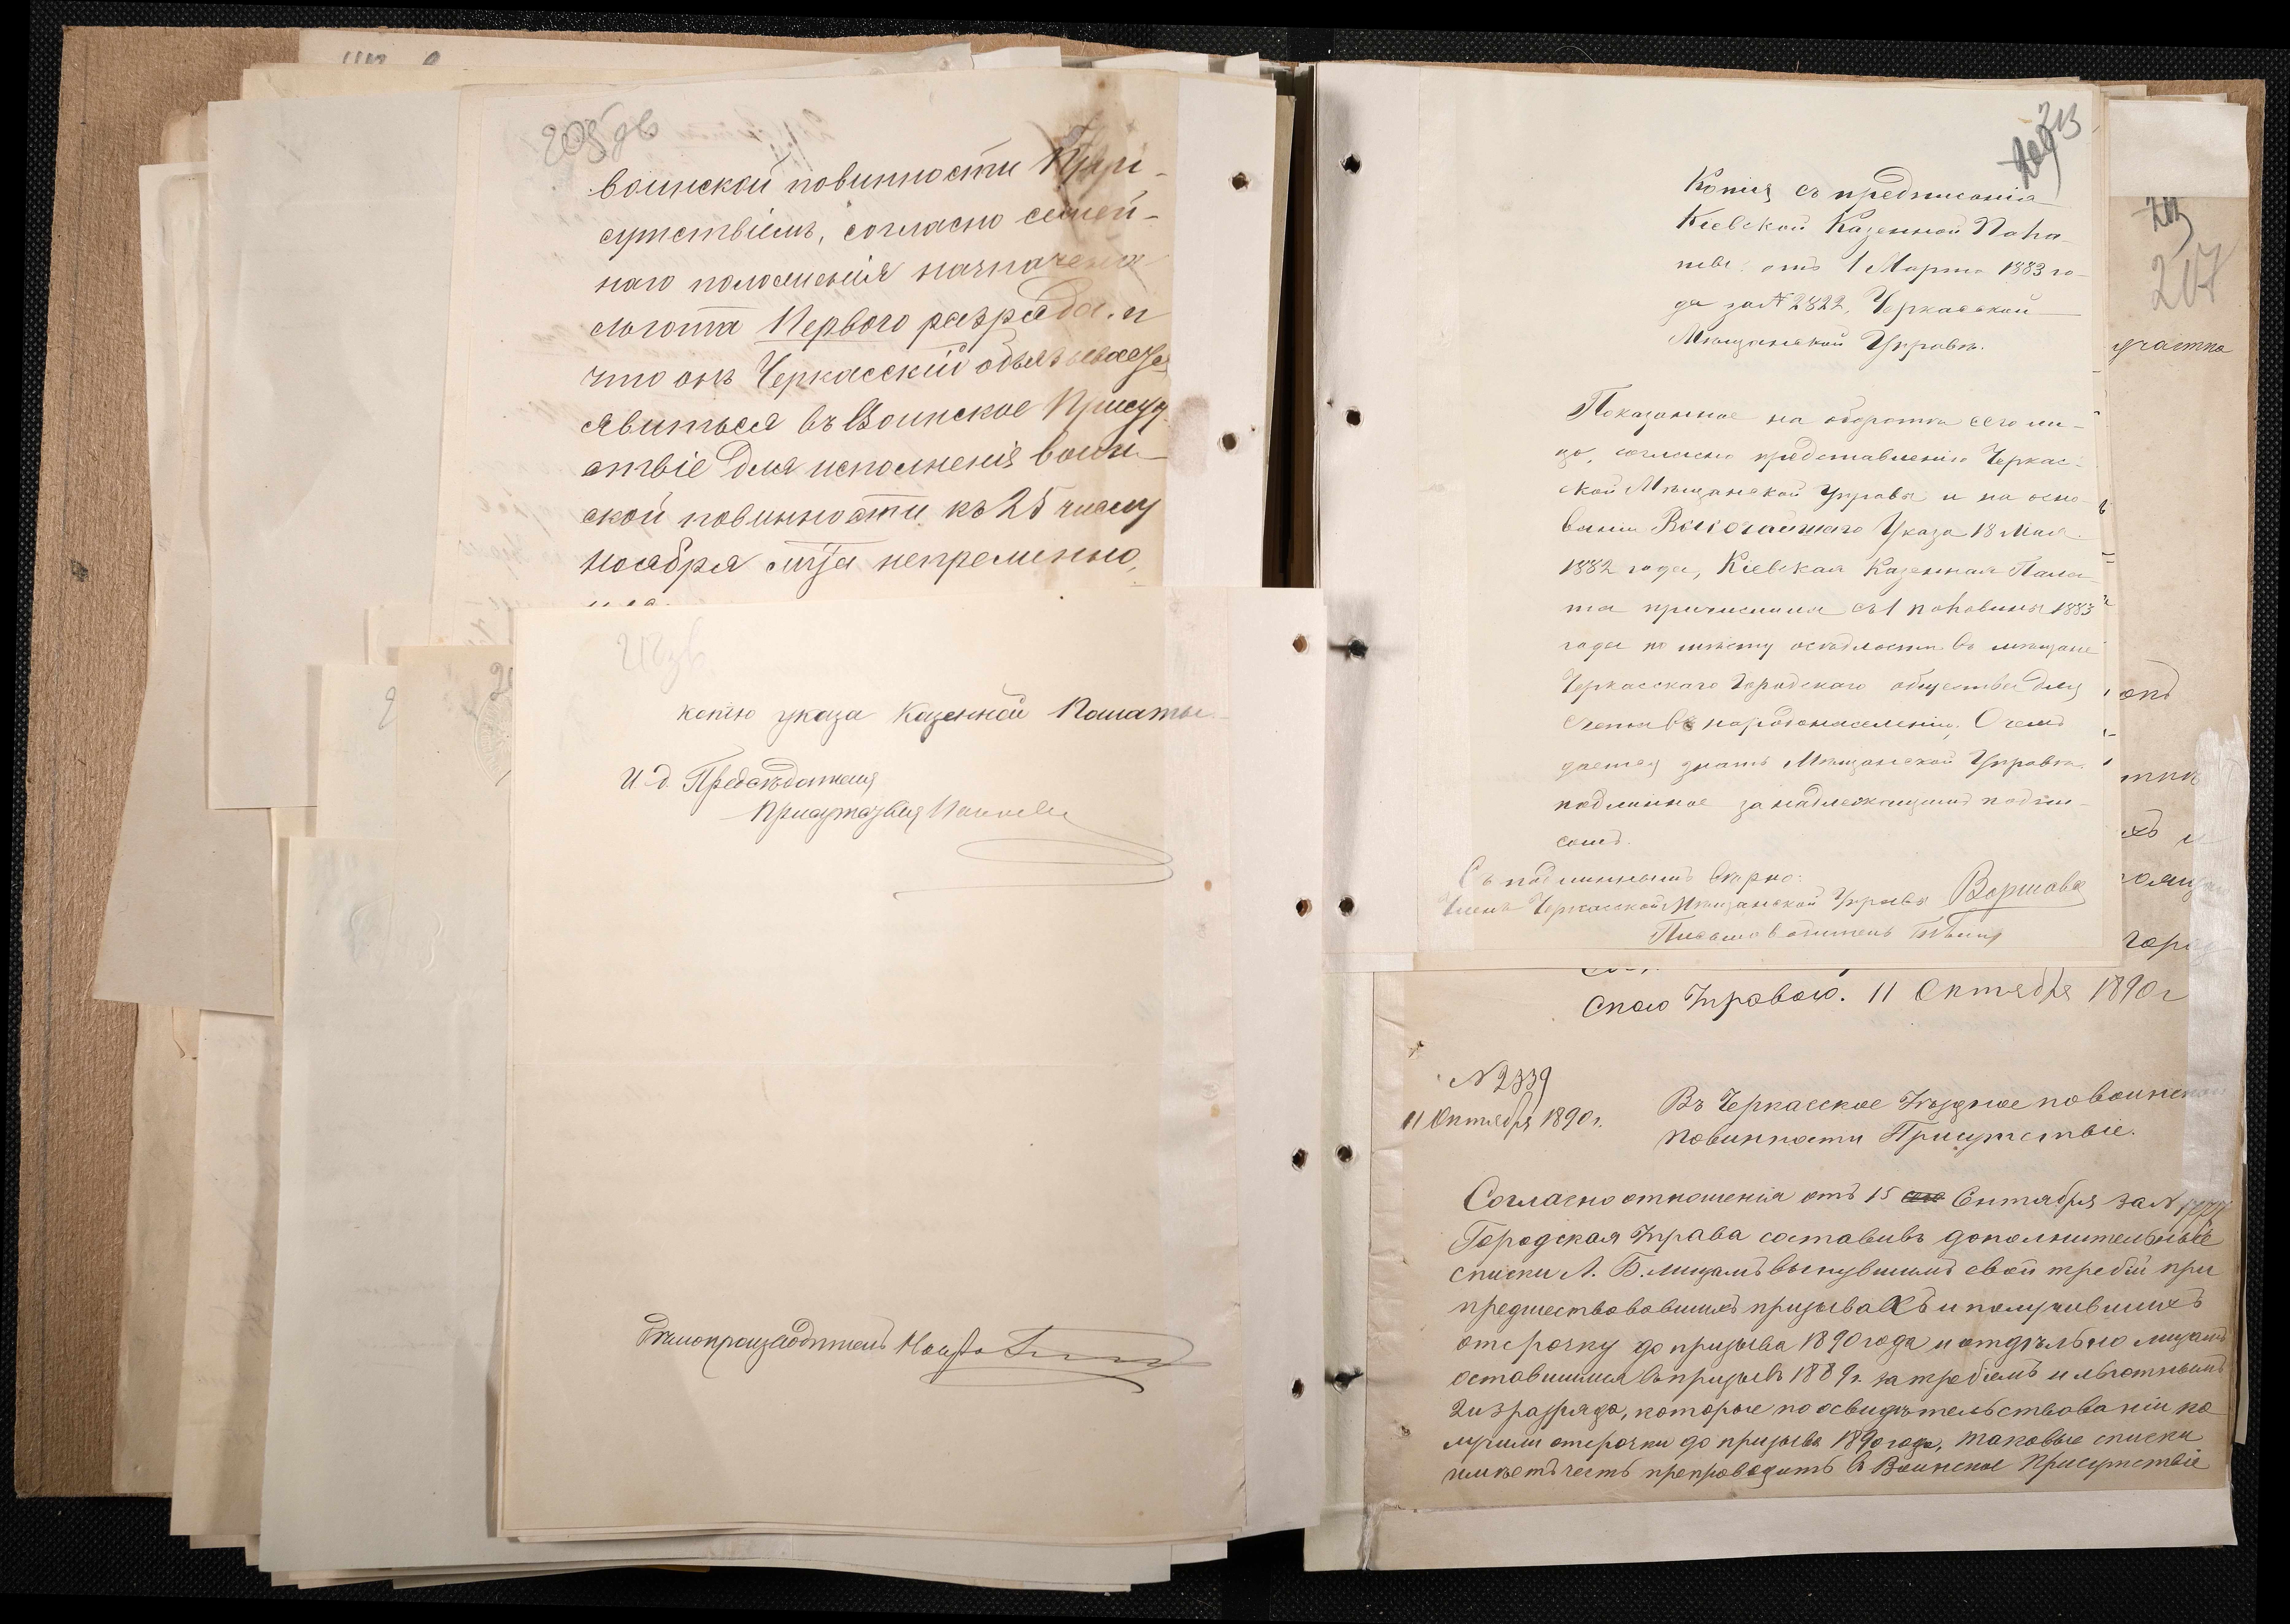 205 об
воинской повинности При-
сутствіемъ, согласно семей-
наго положенія назначена
льгота Перваго разряда. и
что онъ Черкасскій обязывается
явиться въ Воинское Присут
ствіе для исполненія воин-
ской повинности къ 25 числу
ноября м/ца непременно,
копію указа Казенной Палаты.
И. д. Предсѣдателя
Присутствія
Дѣлопроизводитель
213
209
Копія съ предписанія
Кіевской Казенной Пала-
ты отъ 1 Марта 1883 го-
да за № 2822, Черкасской
Мѣщанской Управѣ.
Показанное на оборотѣ сего ли-
цо, согласно представленію Черкас-
ской Мѣщанской Управы и на осно-
ваніи Высочайшаго Указа 18 Мая
1882 года, Кіевская Казенная Пала-
та причислила съ 1 половины 1883
года по мѣсту осѣдлости въ мѣщане
Черкасскаго Городскаго общества для
счета въ народонаселеніи, О чемъ
дается знать Мѣщанской Управѣ.
подлинное за надлежащимъ подпи-
сомъ.
Съ подлиннымъ вѣрно:
Членъ Черкасской Мѣщанской Управы
Письмоводитель
207
участка
скою Управою. 11 Октября 1890 г
№ 2339
11 Октября 1890 г.
Въ Черкасское Уѣздное по воинской
повинности Присутствіе.
Согласно отношенія отъ 15 Сентября за №
Городская Управа составивъ дополнительные
списки А. Б. лицамъ вынувшимъ свой требій при
предшествовавшихъ призывахъ и получившихъ
отсрочку до призыва 1890 года и отдѣльно лицамъ
оставшимся въ призывъ 1889 г. за требіемъ и льготнымъ
2 и 3 разряда, которые по освидѣтельствованіи по
лучили отсрочки до призыва 1890 года, таковые списки
имѣетъ честь препроводить въ Воинское Присутствіе